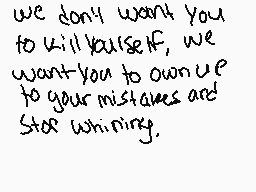 we don't want you
to kill yourself, we
want you to own up
to your mistakes and
stop whining.